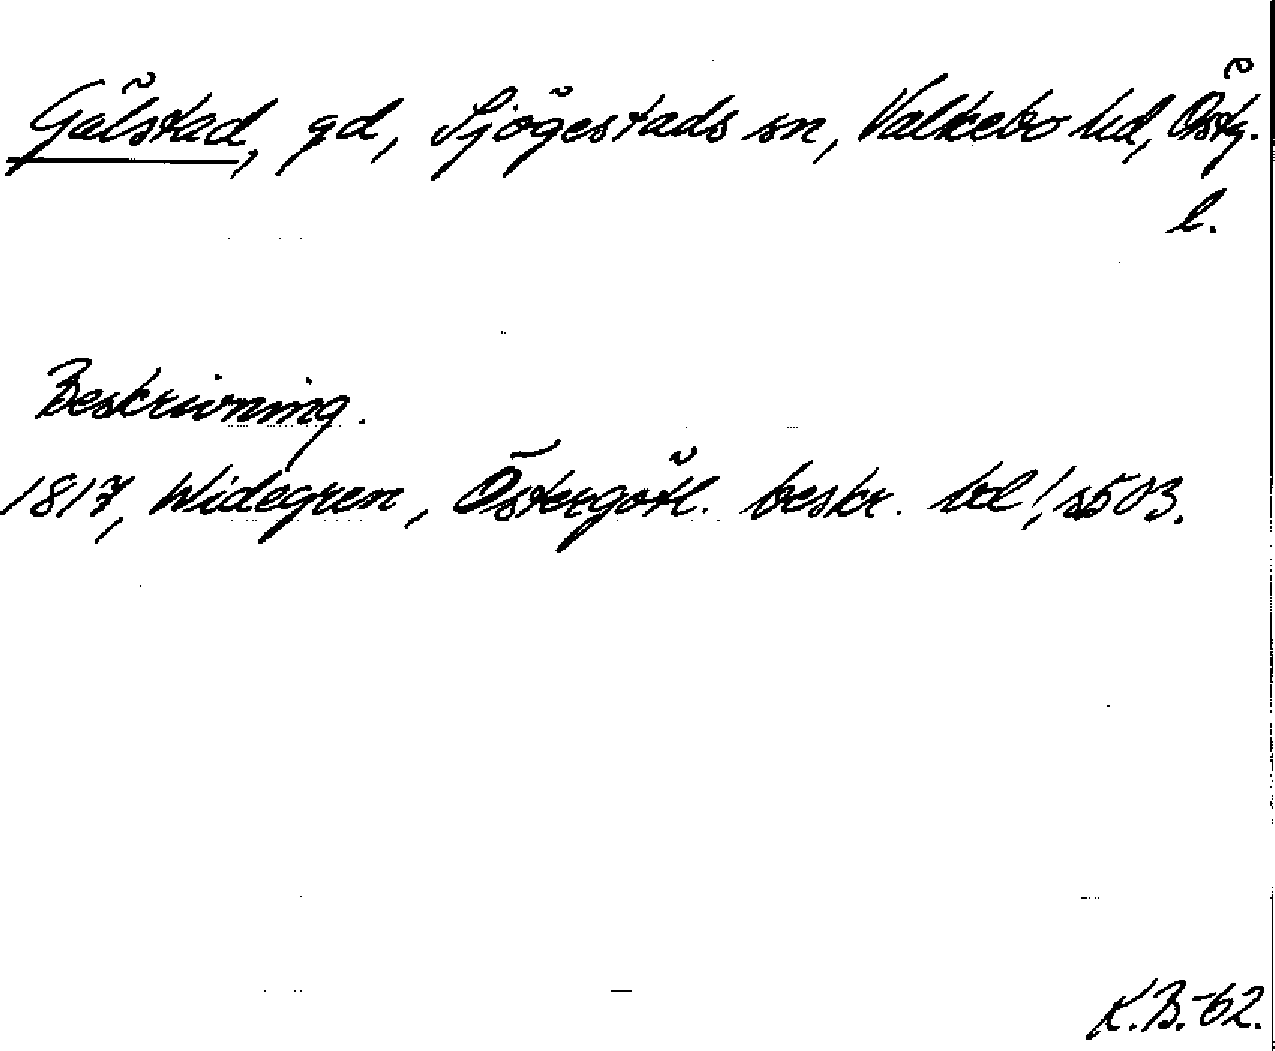 Gälstad, gd, Sjögestads sn, Valkebo hd, Östg.
l.
Beskrivning.
1817, Widegren, Östergötl. beskr. bd 1, s 503.
K.B.-62.